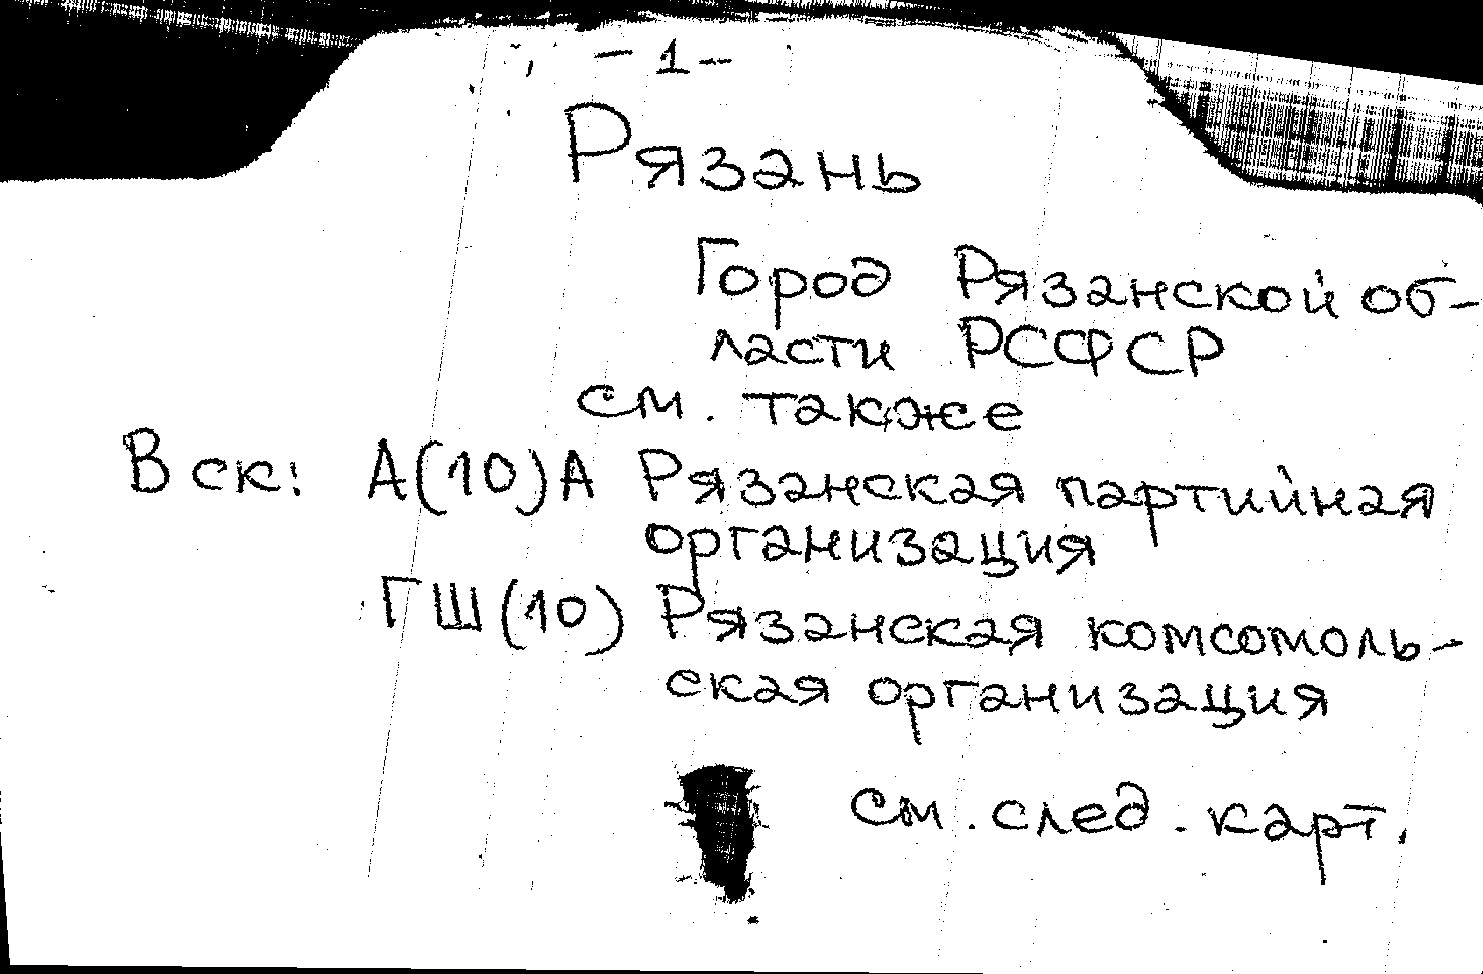 – 1 –
Рязань
Город Рязанской об-
ласти РСФСР
см. также
В ск: А(10)А Рязанская партийная
организация
ГШ(10) Рязанская комсомоль-
ская организация
см. след. карт.